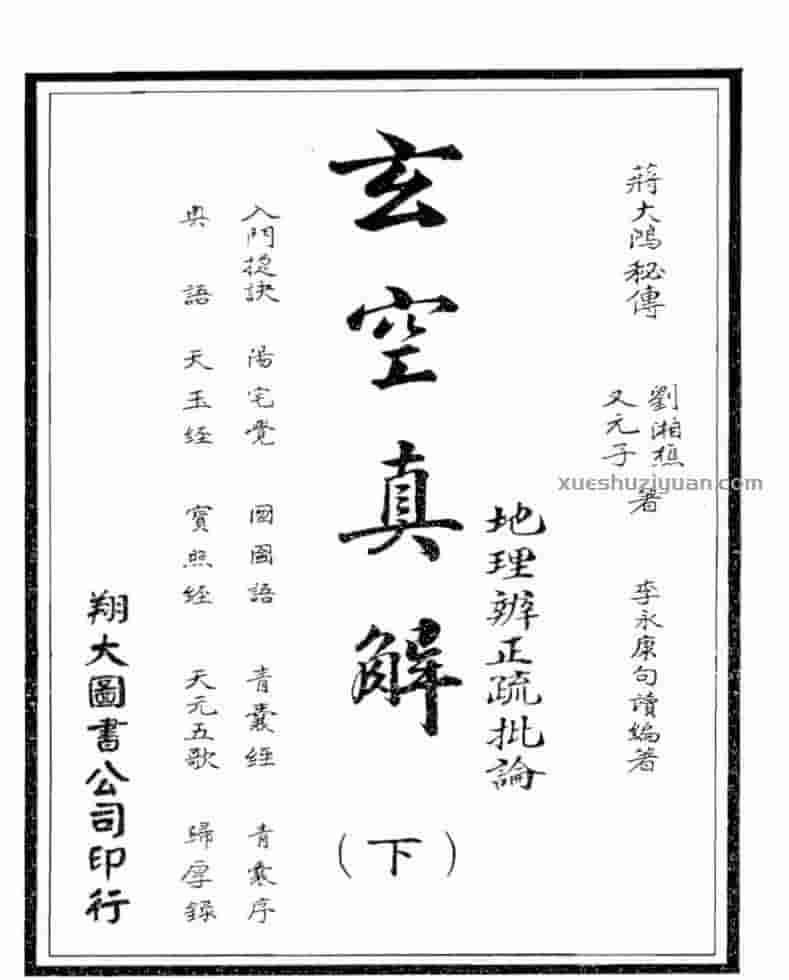 蔣大鴻秘傳 劉湘樵 又元子 著 李永康句讀編著
地理辨正疏批論
玄空真解（下）
入門捷訣 陽宅覺 國語 青囊經 青囊序
奧語 天玉經 寶照經 天元五歌 歸厚錄
翔大圖書公司印行
xueshuziyuan.com